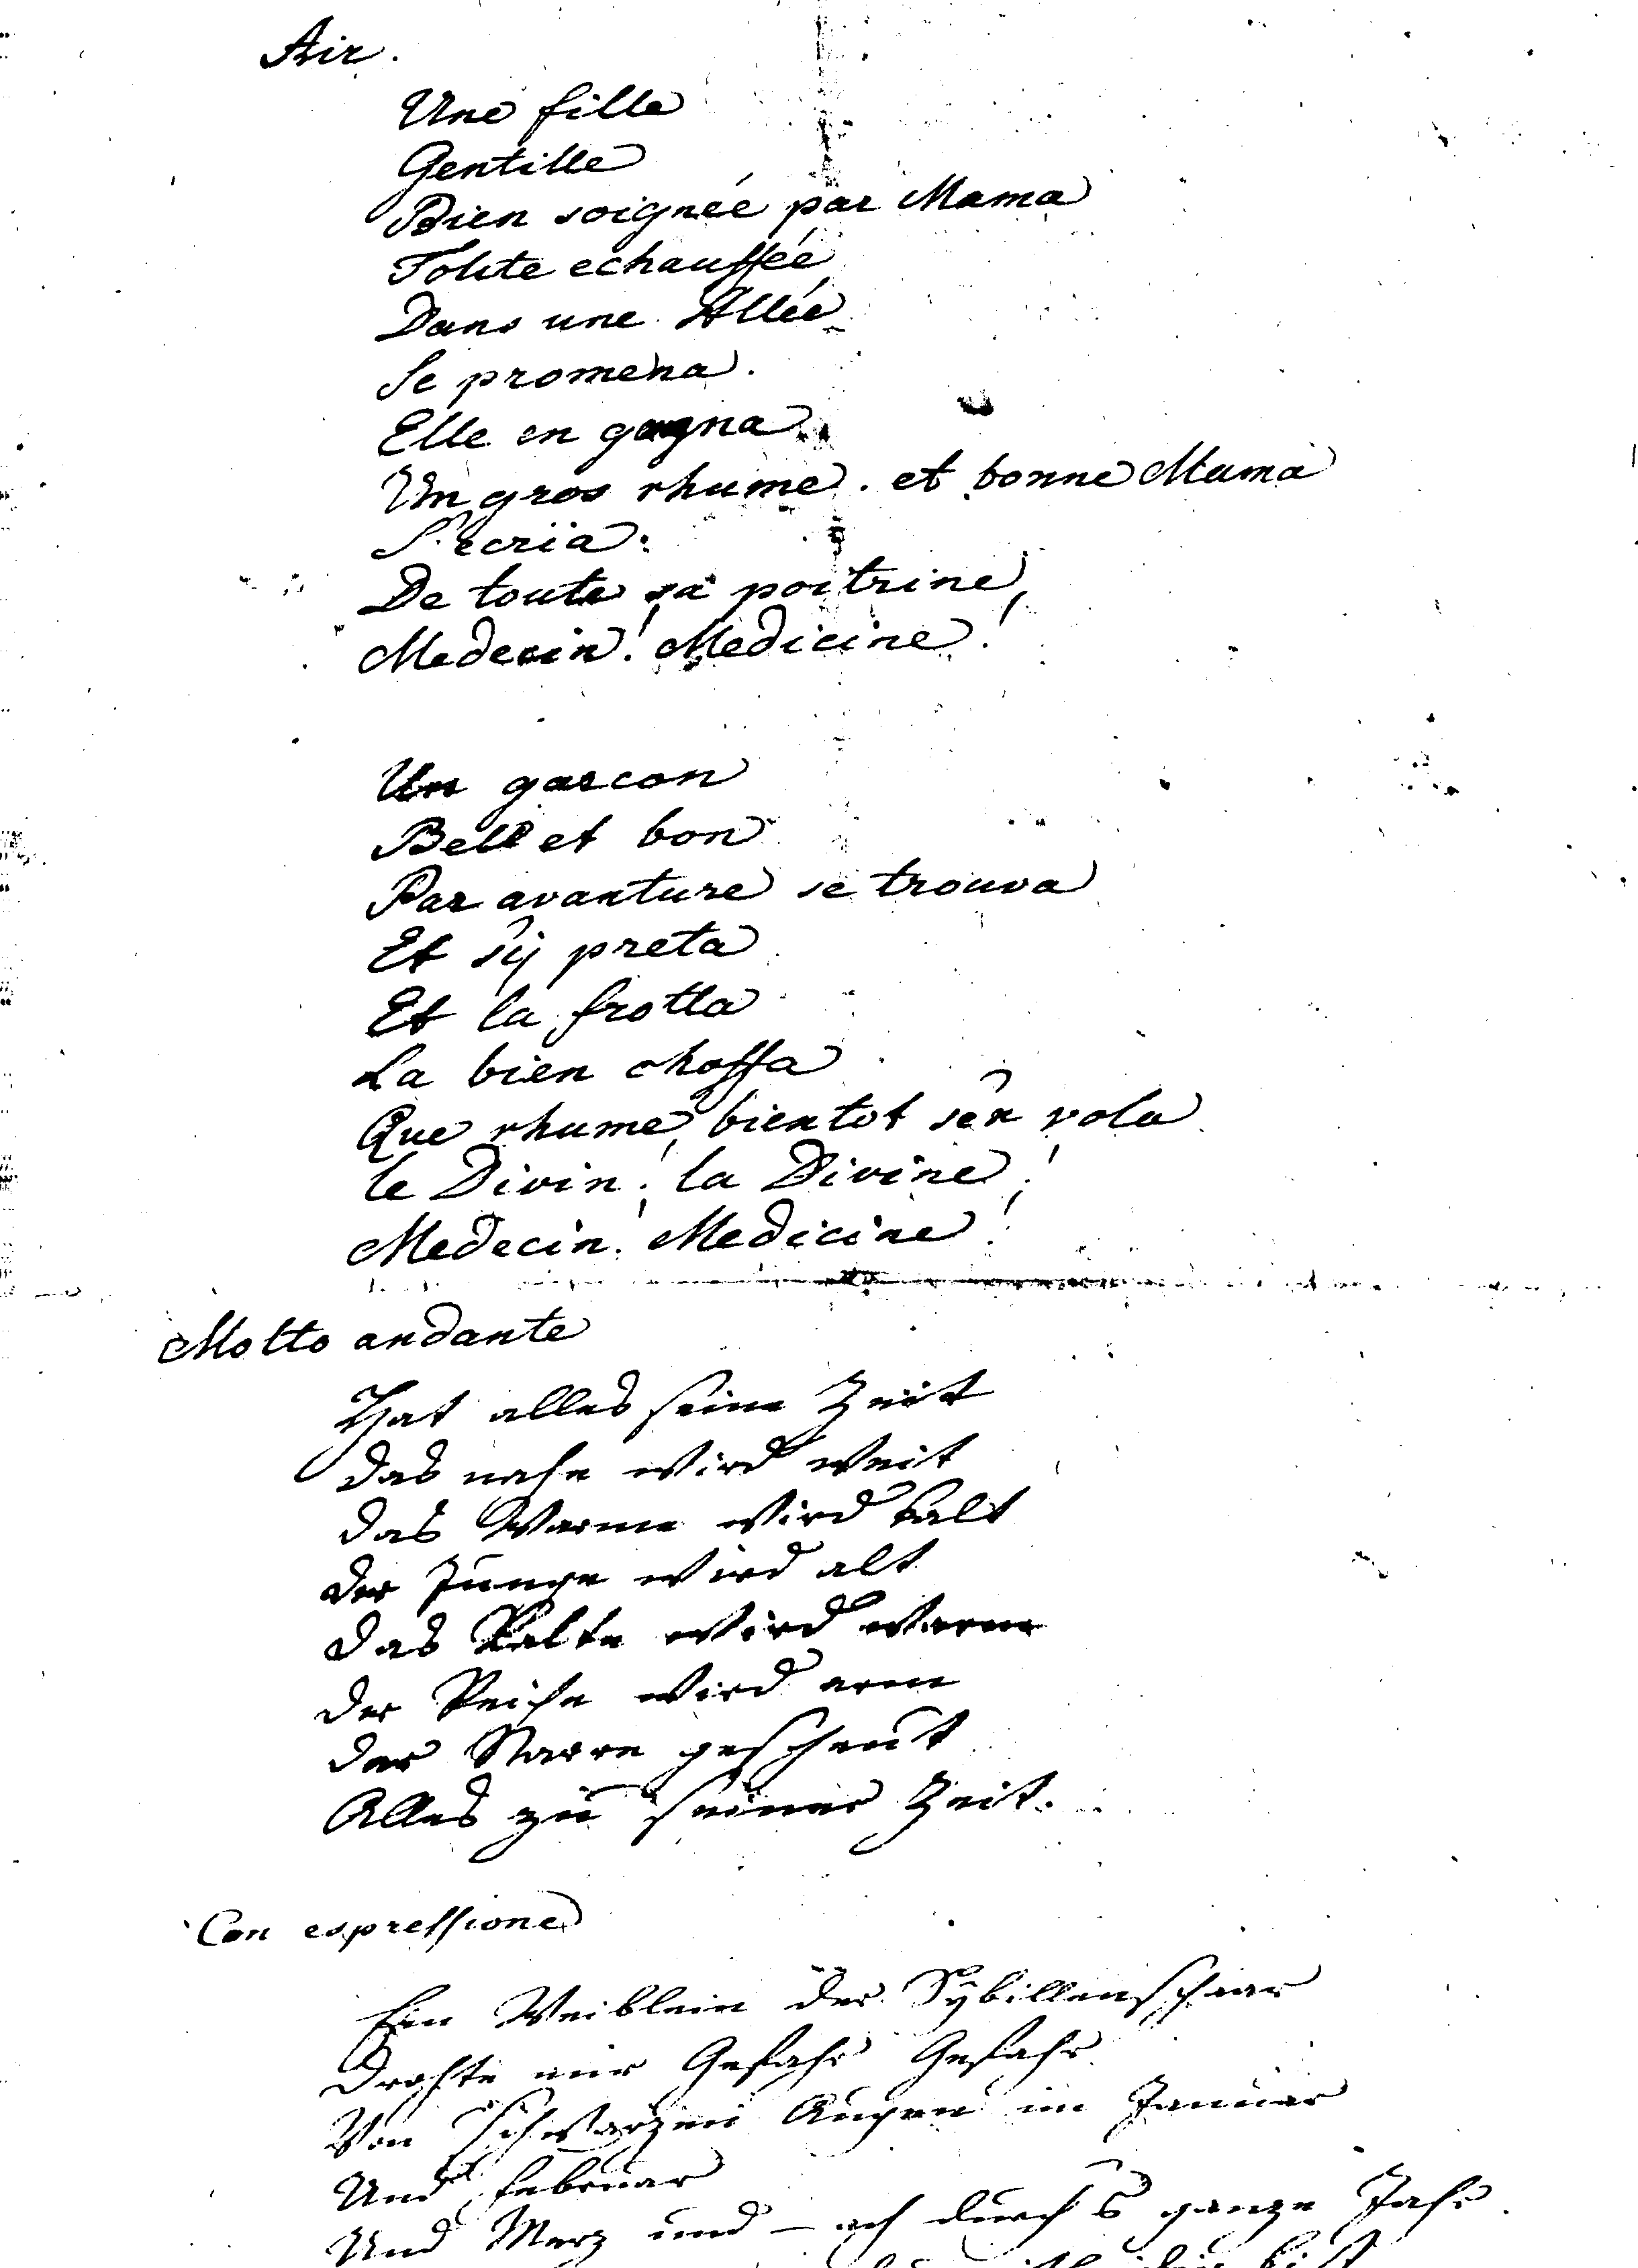 Air.
Une fille
Gentille
Bien soignée par Mama
Toute echauffée
Dans une Allée
Se promena.
Elle en gagna
Un gros rhume. et bonne Mama
S'ecria:
De toute sa poitrine,
Medecin! Medicine!
Un garcon
Bell et bon
Par avanture se trouva
Et s'ij preta
Et la frotta
La bien choffa
Que rhume bientot s'en vola
le Divin! la Divine!
Medecin! Medicine!
Molto andante
Hat alles seine Zeit
Das nahe wird weit
Das Warme wird kalt
Der Junge wird alt
Das Kalte wird warm
Der Reiche wird arm
Der Narre gescheut
Alles zu seiner Zeit.
Con espressione
Ein Weiblein der Sybillenschaar
Drohte mir Gefahr Gefahr
Von schwarzen Augen im Januar
Und Februar
Und Merz und – ach durch's ganze Jahr.